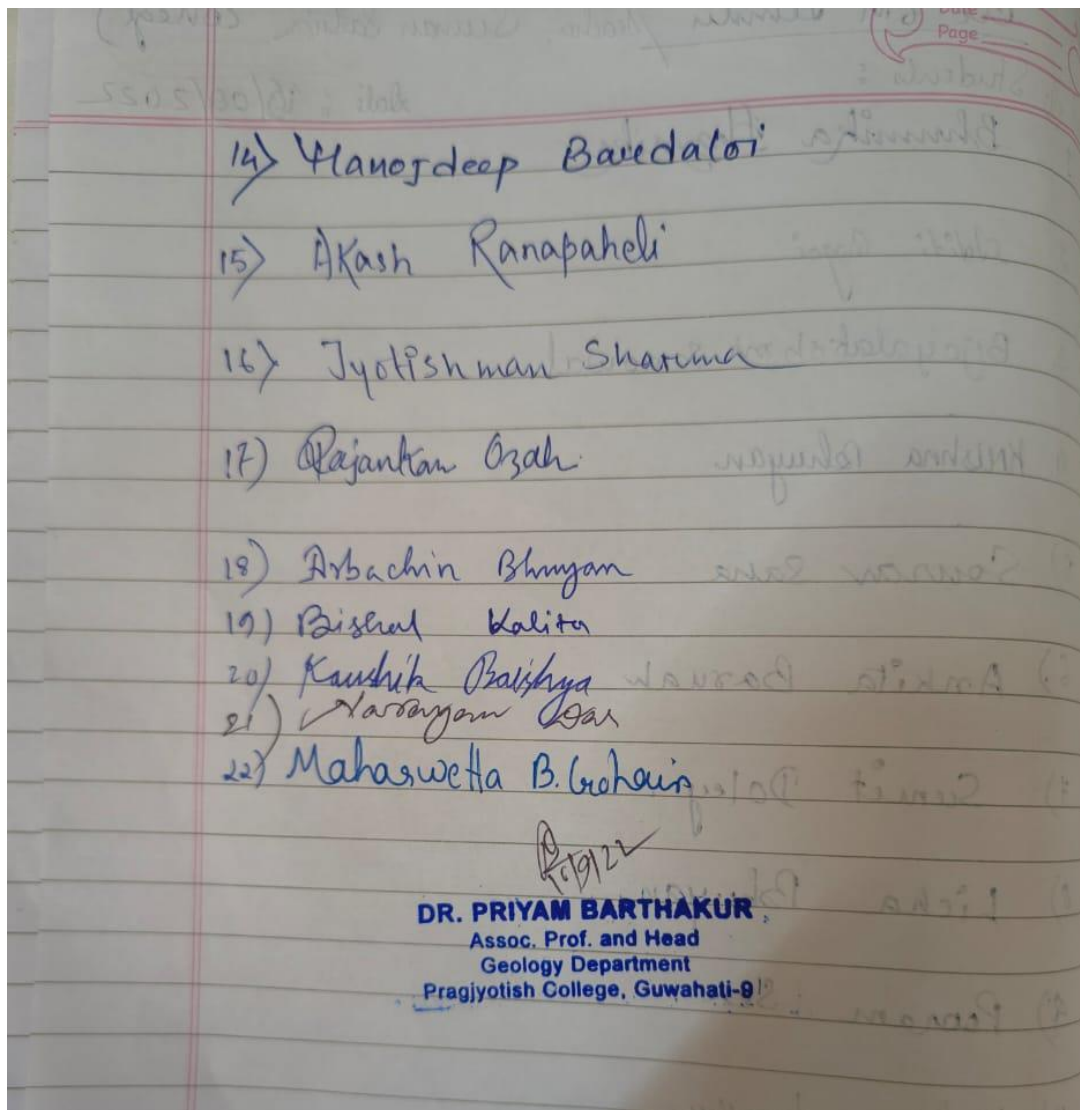 Date
Page
14) Manojdeep Bardaloi
15) Akash Ranapaheli
16) Jyotishman Sharma
17) Rajankan Ozah.
18) Arbachin Bhuyan
19) Bishal Kalita
20) Kaushik Baishya
21) Narayan Das
22) Mahaswetta B. Gohain
DR. PRIYAM BARTHAKUR
Assoc. Prof. and Head
Geology Department
Pragjyotish College, Guwahati-9